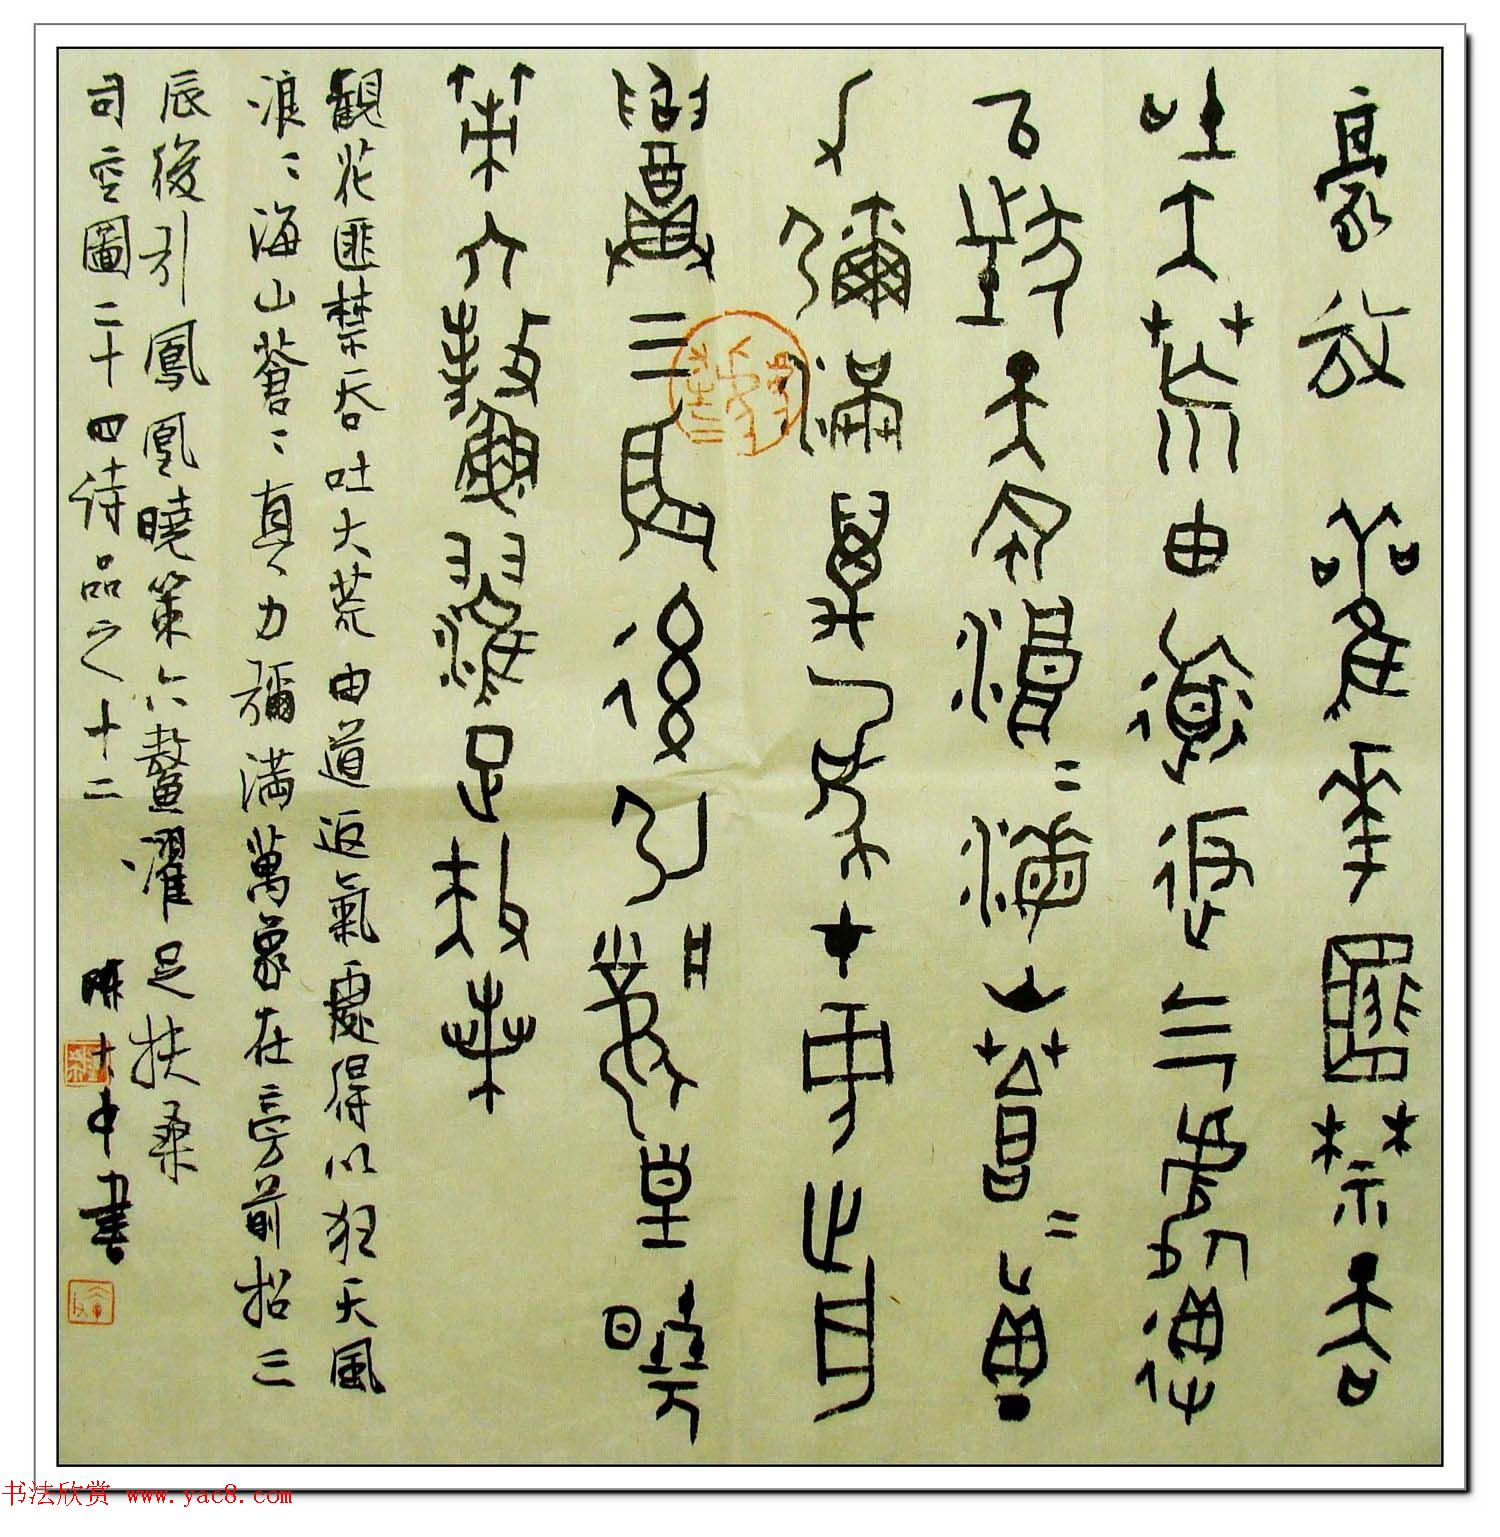 豪放 觀花匪禁吞
吐大荒由道返气處得
以狂天風浪〻海山蒼〻真
力彌滿萬象在旁前
招三辰後引鳳凰曉
策六鼇濯足扶桑
觀花匪禁吞吐大荒由道返氣處得以狂天風
浪〻海山蒼〻真力彌滿萬象在旁前招三
辰後引鳳凰曉策六鼇濯足扶桑
司空圖二十四詩品之十二 陳大中書
书法欣赏 www.yac8.com